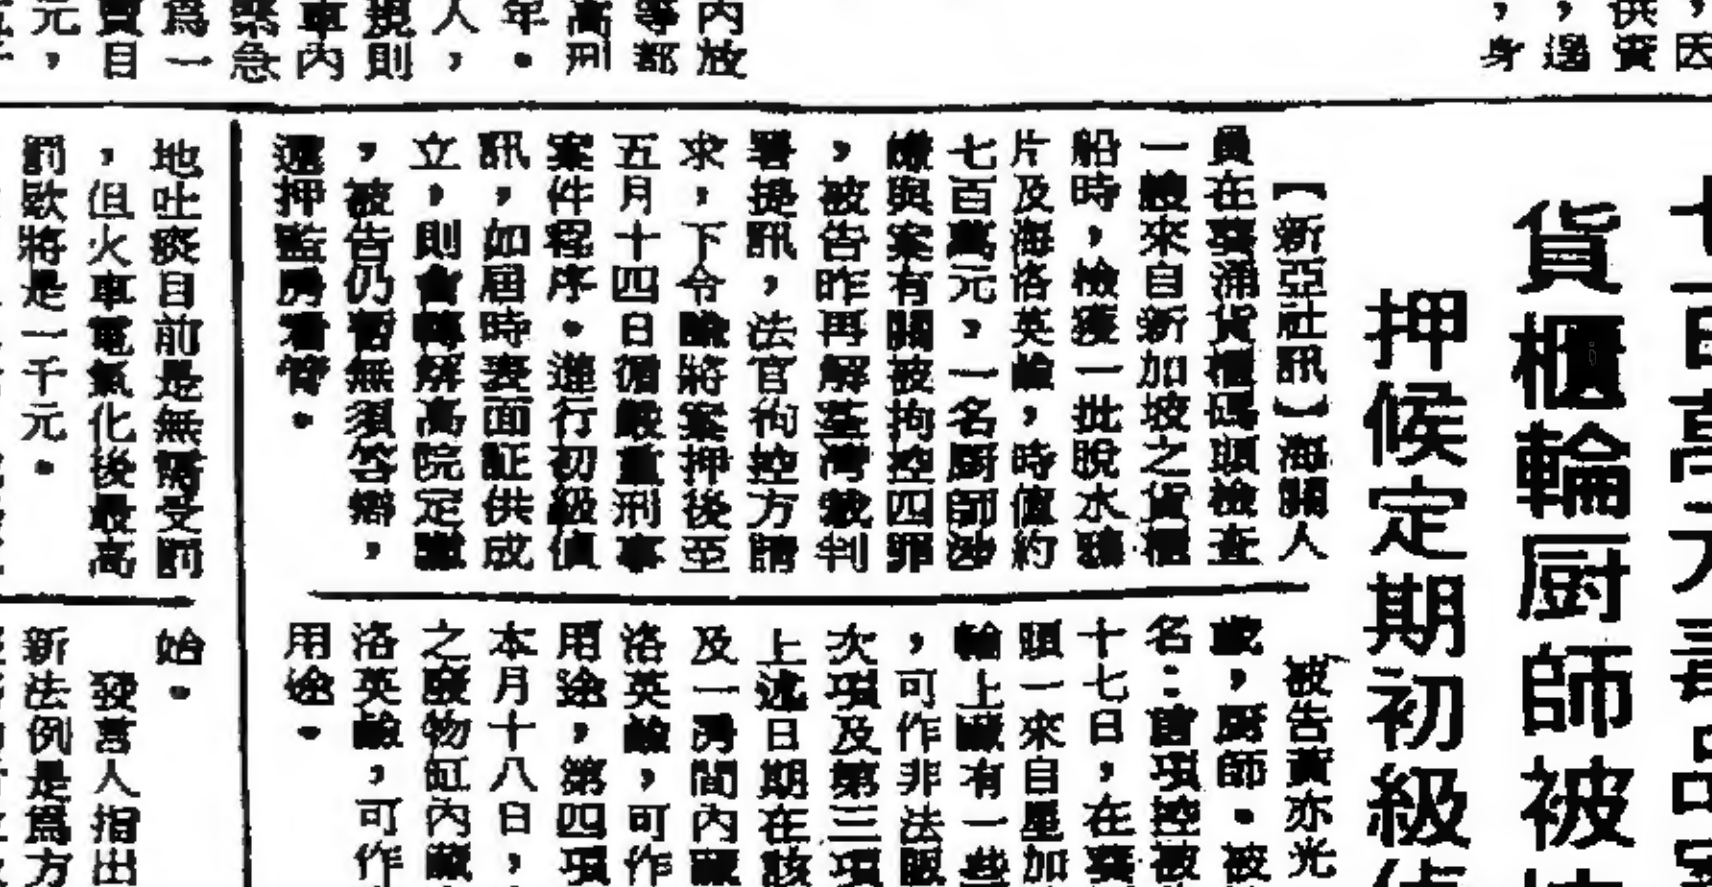 ，因
供資
，過
，身
內放
等都
高刑
年。
人，
規則
車內
緊急
爲一
目
元，
七百萬元毒品案
貨櫃輪厨師被
押候定期初級偵
【新亞社訊】海關人
員在葵涌貨櫃碼頭檢查
一艘來自新加坡之貨櫃
船時，檢獲一批脫水鴉
片及海洛英鹼，時值約
七百萬元，一名厨師涉
嫌與案有關被拘控四罪
，被告昨再解荃灣裁判
署提訊，法官徇控方請
求，下令諭將案押後至
五月十四日循嚴重刑事
案件程序。進行初級偵
訊，如屆時表面証供成
立，則會轉解高院定讞
，被告仍暫無須答辯，
還押監房看管。
被告黃亦光
歲，厨師。被
名：首項控被
十七日，在葵
頭一來自星加
輪上藏有一些
，可作非法販
次項及第三項
上述日期在該
及一房間內藏
洛英鹼，可作
用途，第四項
本月十八日，
之廢物缸內藏
洛英鹼，可作
用途。
地吐痰目前是無需受罰
，但火車電氣化後最高
罰欵將是一千元。
始。
發言人指出
新法例是爲方